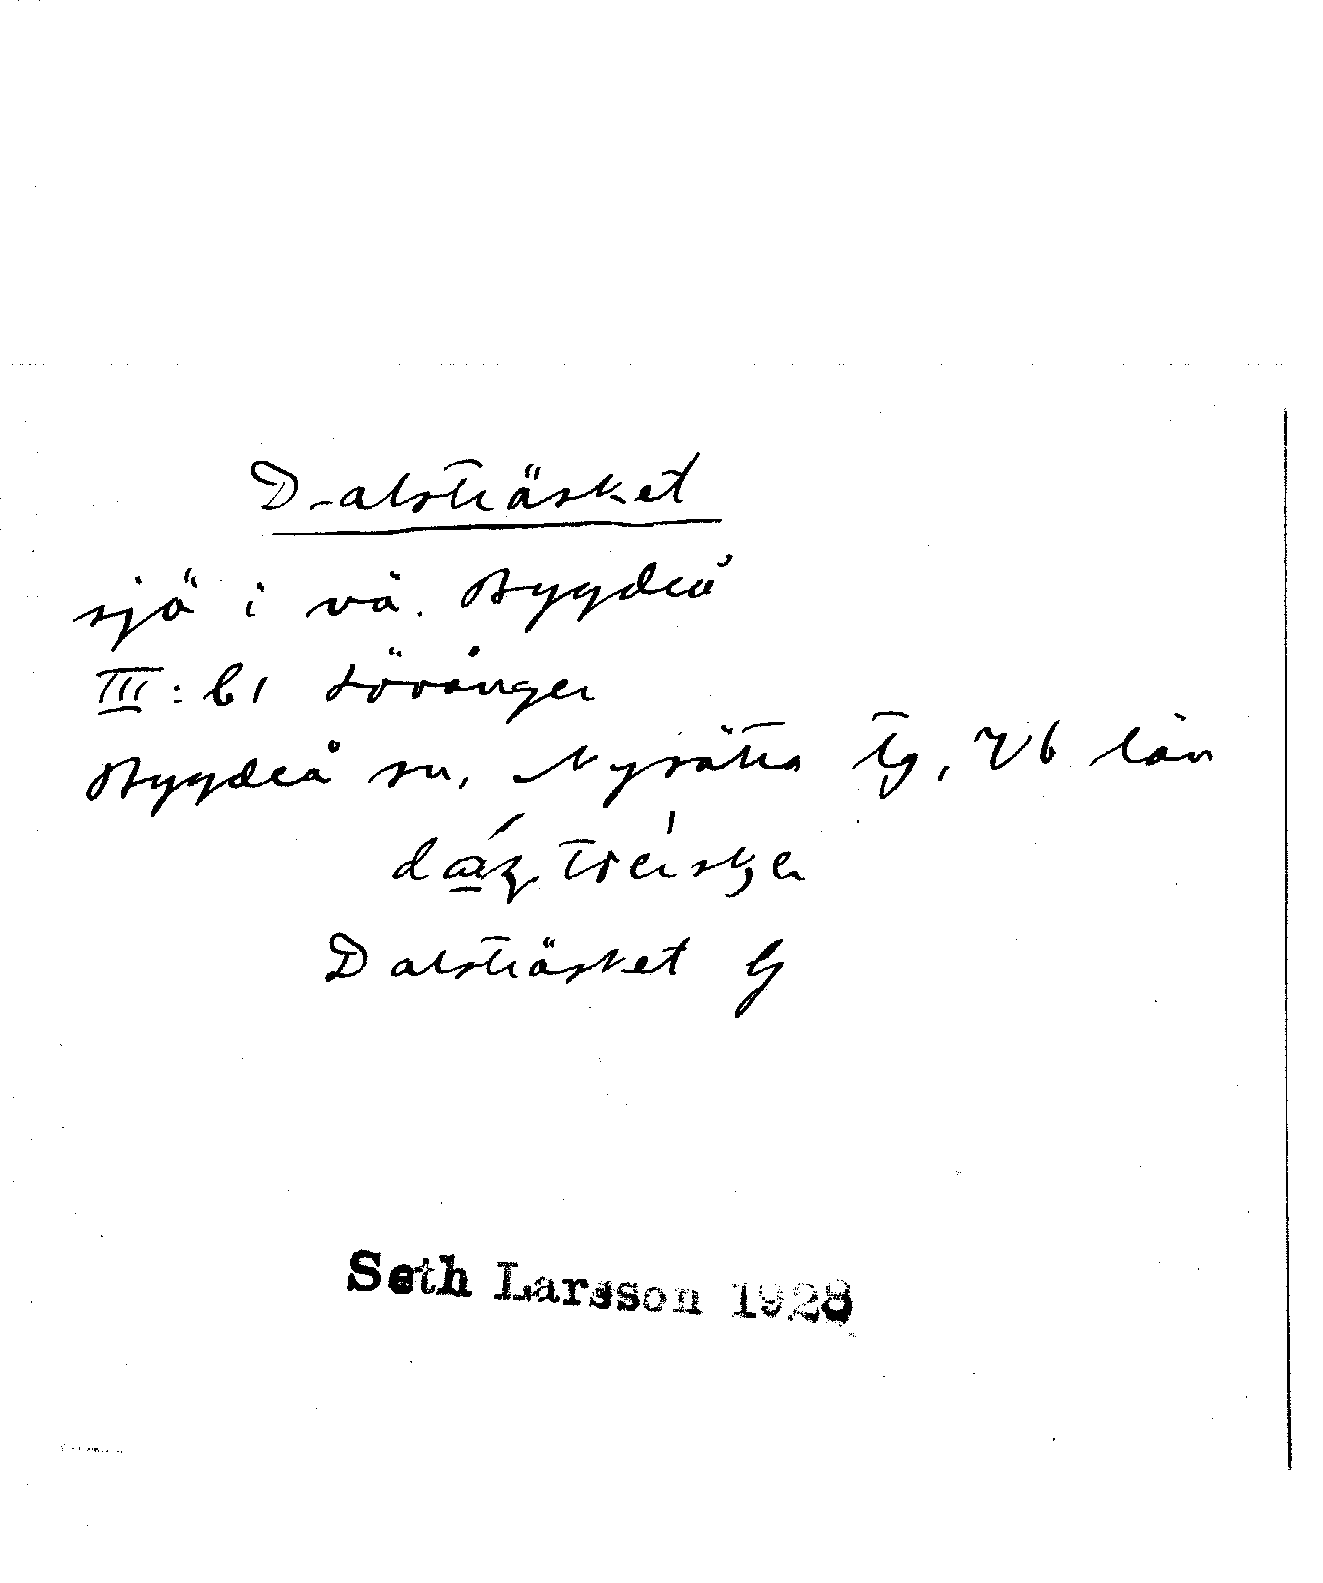 Dalsträsket
sjö i vä. Bygdeå
III:b1 Lövånger
Bygdeå sn, Nysätra tg, Vb län
Dalsträsket G
Seth Larsson 1928